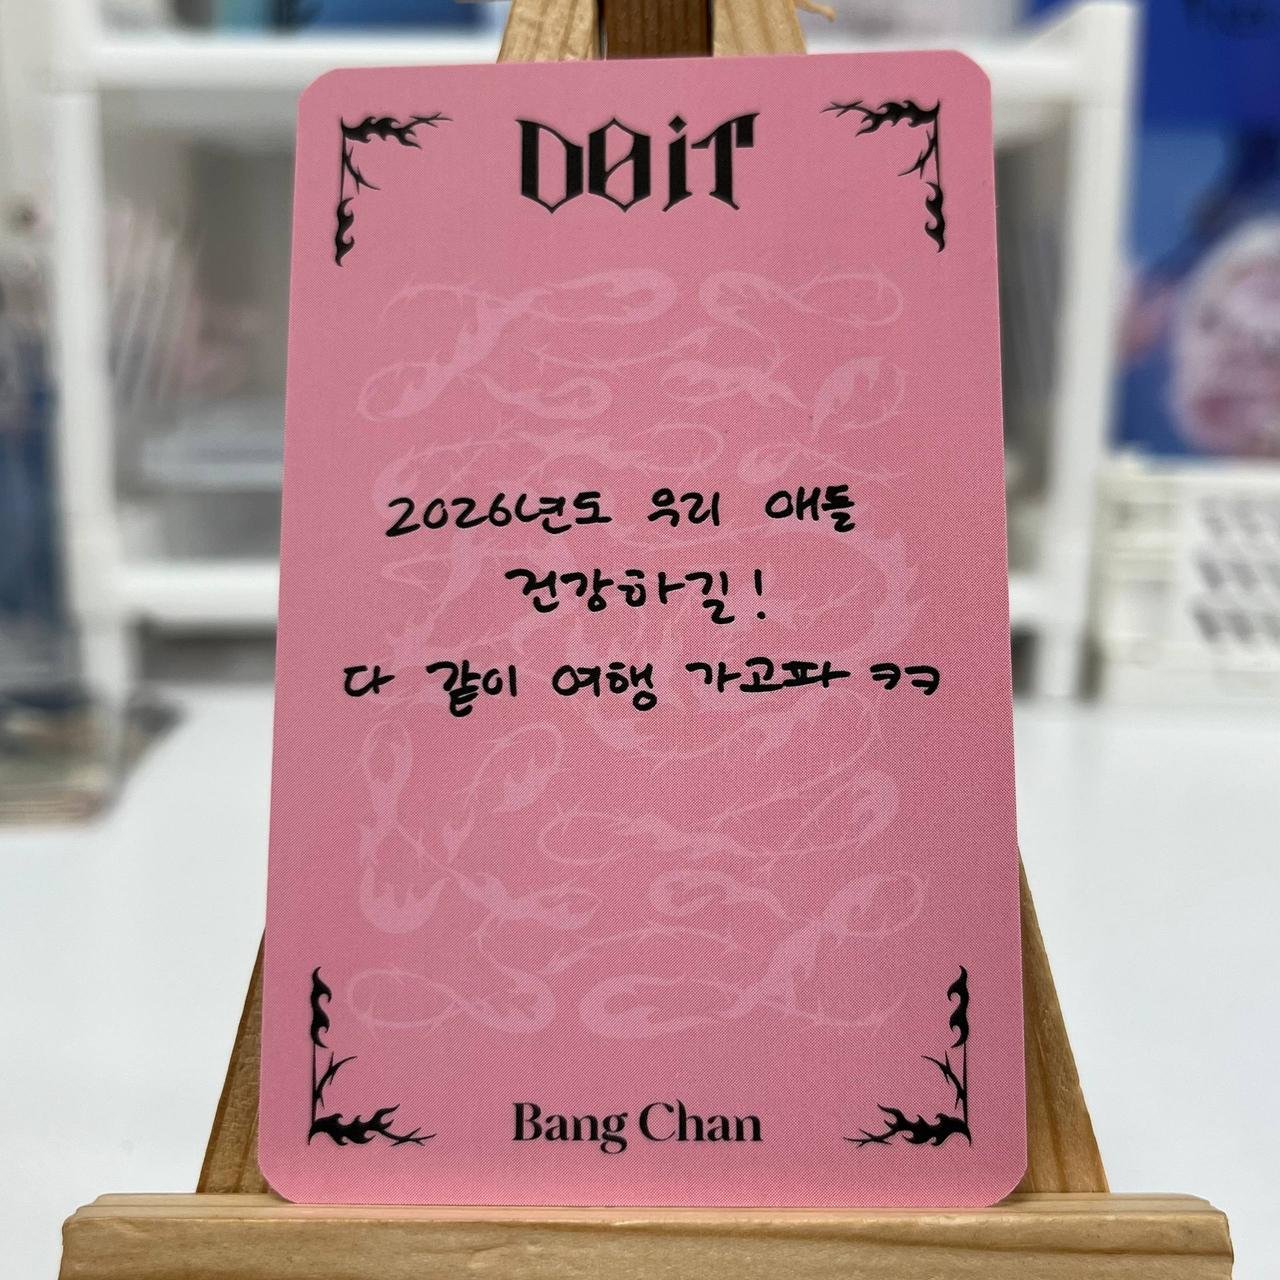 DO iT
2026년도 우리 애들
건강하길!
다 같이 여행 가고파 ㅋㅋ
Bang Chan